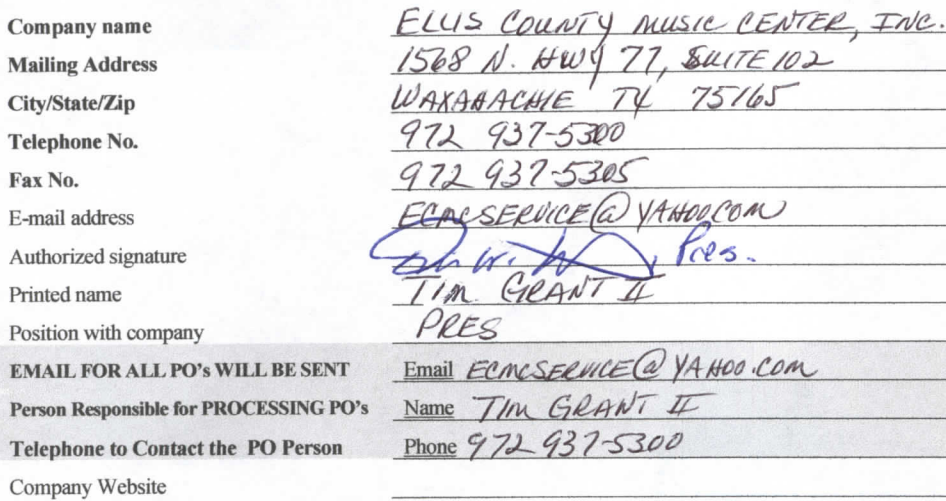 Company name ELLIS COUNTY MUSIC CENTER, INC.
Mailing Address 1568 N. HWY 77, SUITE 102
City/State/Zip WAXAHACHIE TX 75165
Telephone No. 972 937-5300
Fax No. 972 937-5305
E-mail address ECMCSERVICE@YAHOO.COM
Authorized signature , Pres.
Printed name TIM GRANT II
Position with company PRES
EMAIL FOR ALL PO's WILL BE SENT Email ECMCSERVICE@YAHOO.COM
Person Responsible for PROCESSING PO's Name TIM GRANT II
Telephone to Contact the PO Person Phone 972 937-5300
Company Website